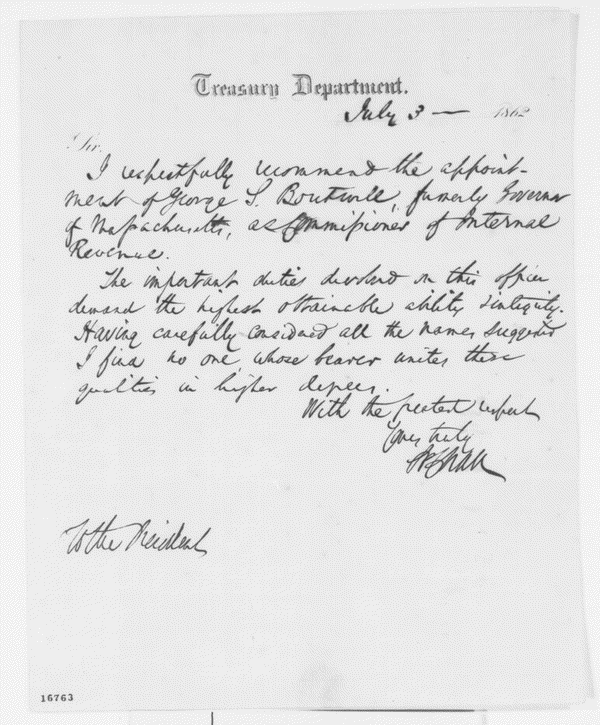 Treasury Department.
July 3 — 1862
Sir,
I respectfully recommend the appoint-
ment of George S. Boutwell, formerly Governor
of Massachusetts, as Commissioner of Internal
Revenue.
The important duties devolved on this officer
demand the highest obtainable ability & integrity.
Having carefully considered all the names suggested
I find no one whose bearer unites these
qualities in higher degree.
With the greatest respect
Yours truly
SPChase
To the President
16763